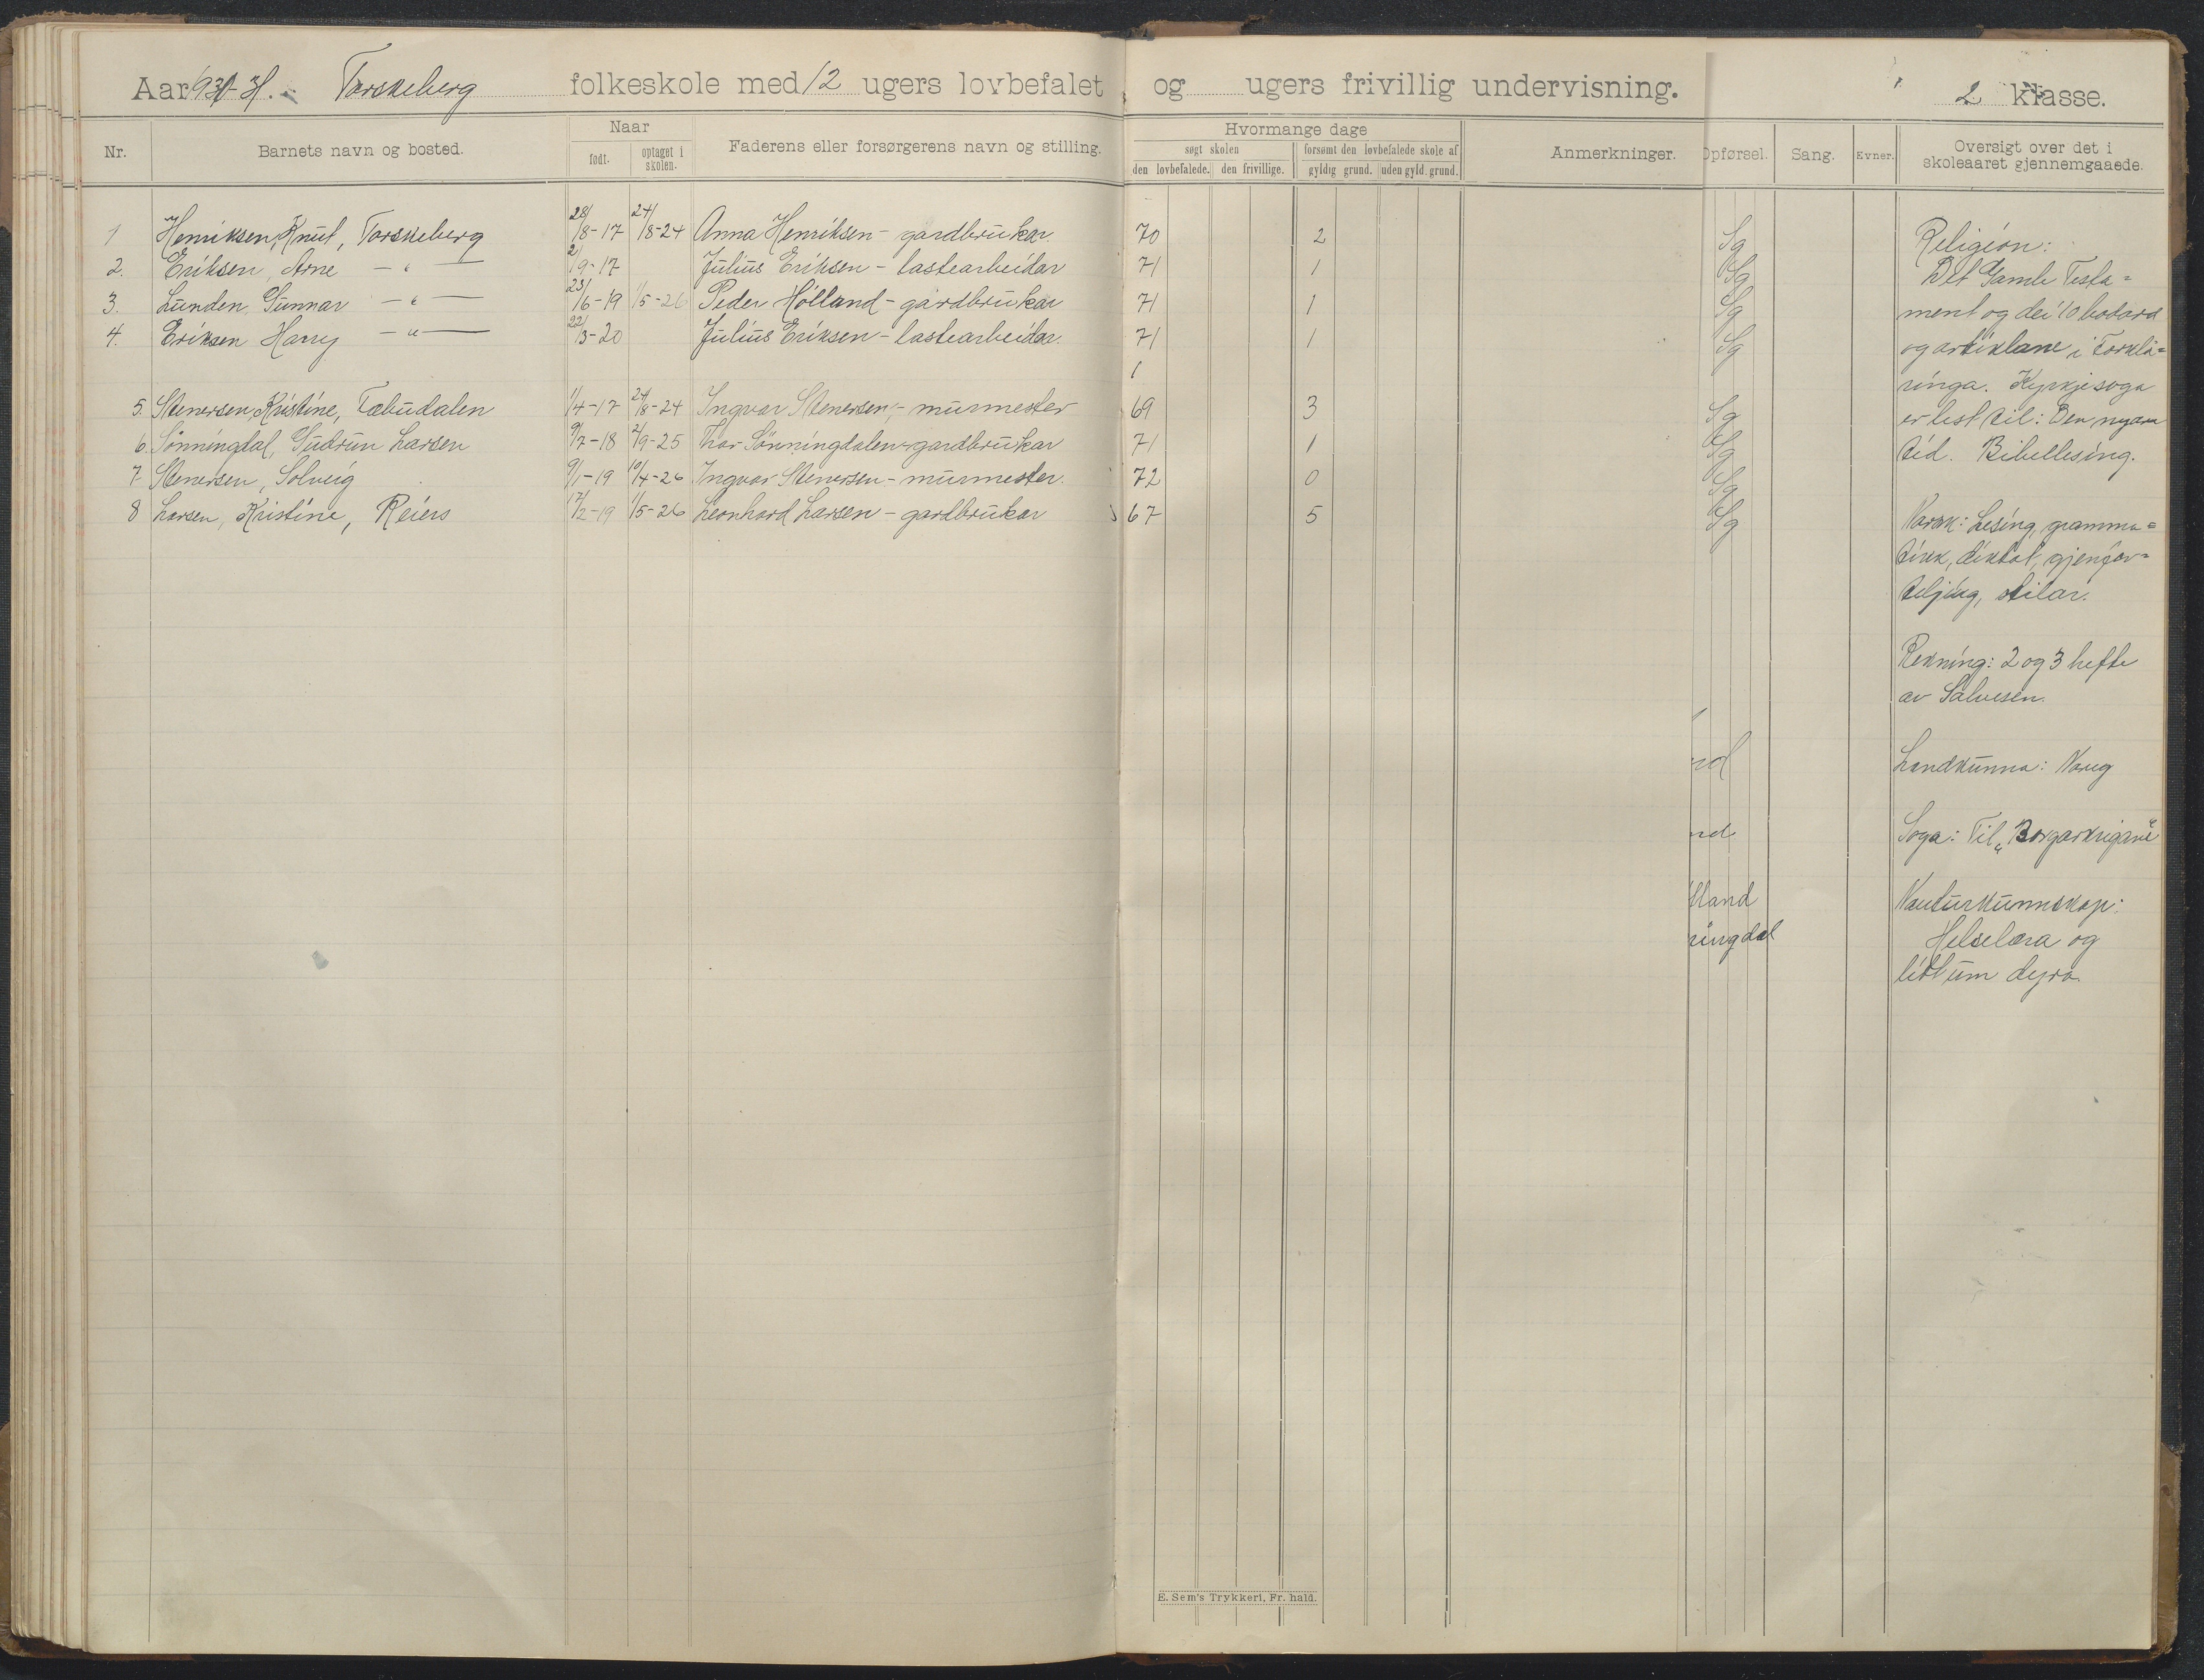 Aar 1930-31. Torskeberg folkeskole med 12 ugers lovbefalet og ugers frivillig undervisning. 2 klasse.
Nr. Barnets navn og bosted. Naar født. optaget i skolen. Faderens eller forsørgerens navn og stilling. Hvormange dage søgt skolen den lovbefalede. den frivillige. forsømt den lovbefalede skole af gyldig grund. uden gyld. grund. Anmerkninger. Opførsel. Sang. Evner. Oversigt over det i skoleaaret gjennemgaaede.
1 Henriksen, Knut, Torskeberg 28/8-17 24/8-24 Anna Henriksen - gardbrukar 70 2 Sg
2. Eriksen, Arne - " - 2/9-17 Julius Eriksen - lastearbeidar 71 1 Sg
3. Lunden, Gunnar - " - 23/6-19 1/5-26 Peder Holland - gardbrukar 71 1 Sg
4. Eriksen Harry - " - 22/3-20 Julius Eriksen - lastearbeidar. 71 1 Sg
1
5. Stenersen, Kristine, Tæbudalen 1/4-17 24/8-24 Ingvar Stenersen, - murmester 69 3 Sg
6. Sønningdal, Gudrun Larsen 9/7-18 2/9-25 Thor Sønningdalen - gardbrukar 71 1 Sg
7 Stenersen, Solveig 9/1-19 10/4-26 Ingvar Stenersen - murmester. 72 0 Sg
8 Larsen, Kristine, Reiers 17/2-19 1/5-26 Leonhard Larsen - gardbrukar 67 5 Sg
Religion:
Det Gamle Testa=
ment og dei 10 bodord
og artiklane i Forklå=
ringa. Kyrkjesoga
er lest til: Den nyare
tid. Bibellesing.
Norsk: Lesing, gramma=
tikk, diktat, gjenfor=
teljing, stilar.
Rekning: 2 og 3 hefte
av Salvesen.
Landkunna: Noreg
Soga: Til „Borgarkrigane"
Nauturkunnskap:
Helselæra og
litt um dyra.
nd
nd
lland
ningdal
E. Sem's Trykkeri, Fr. hald.